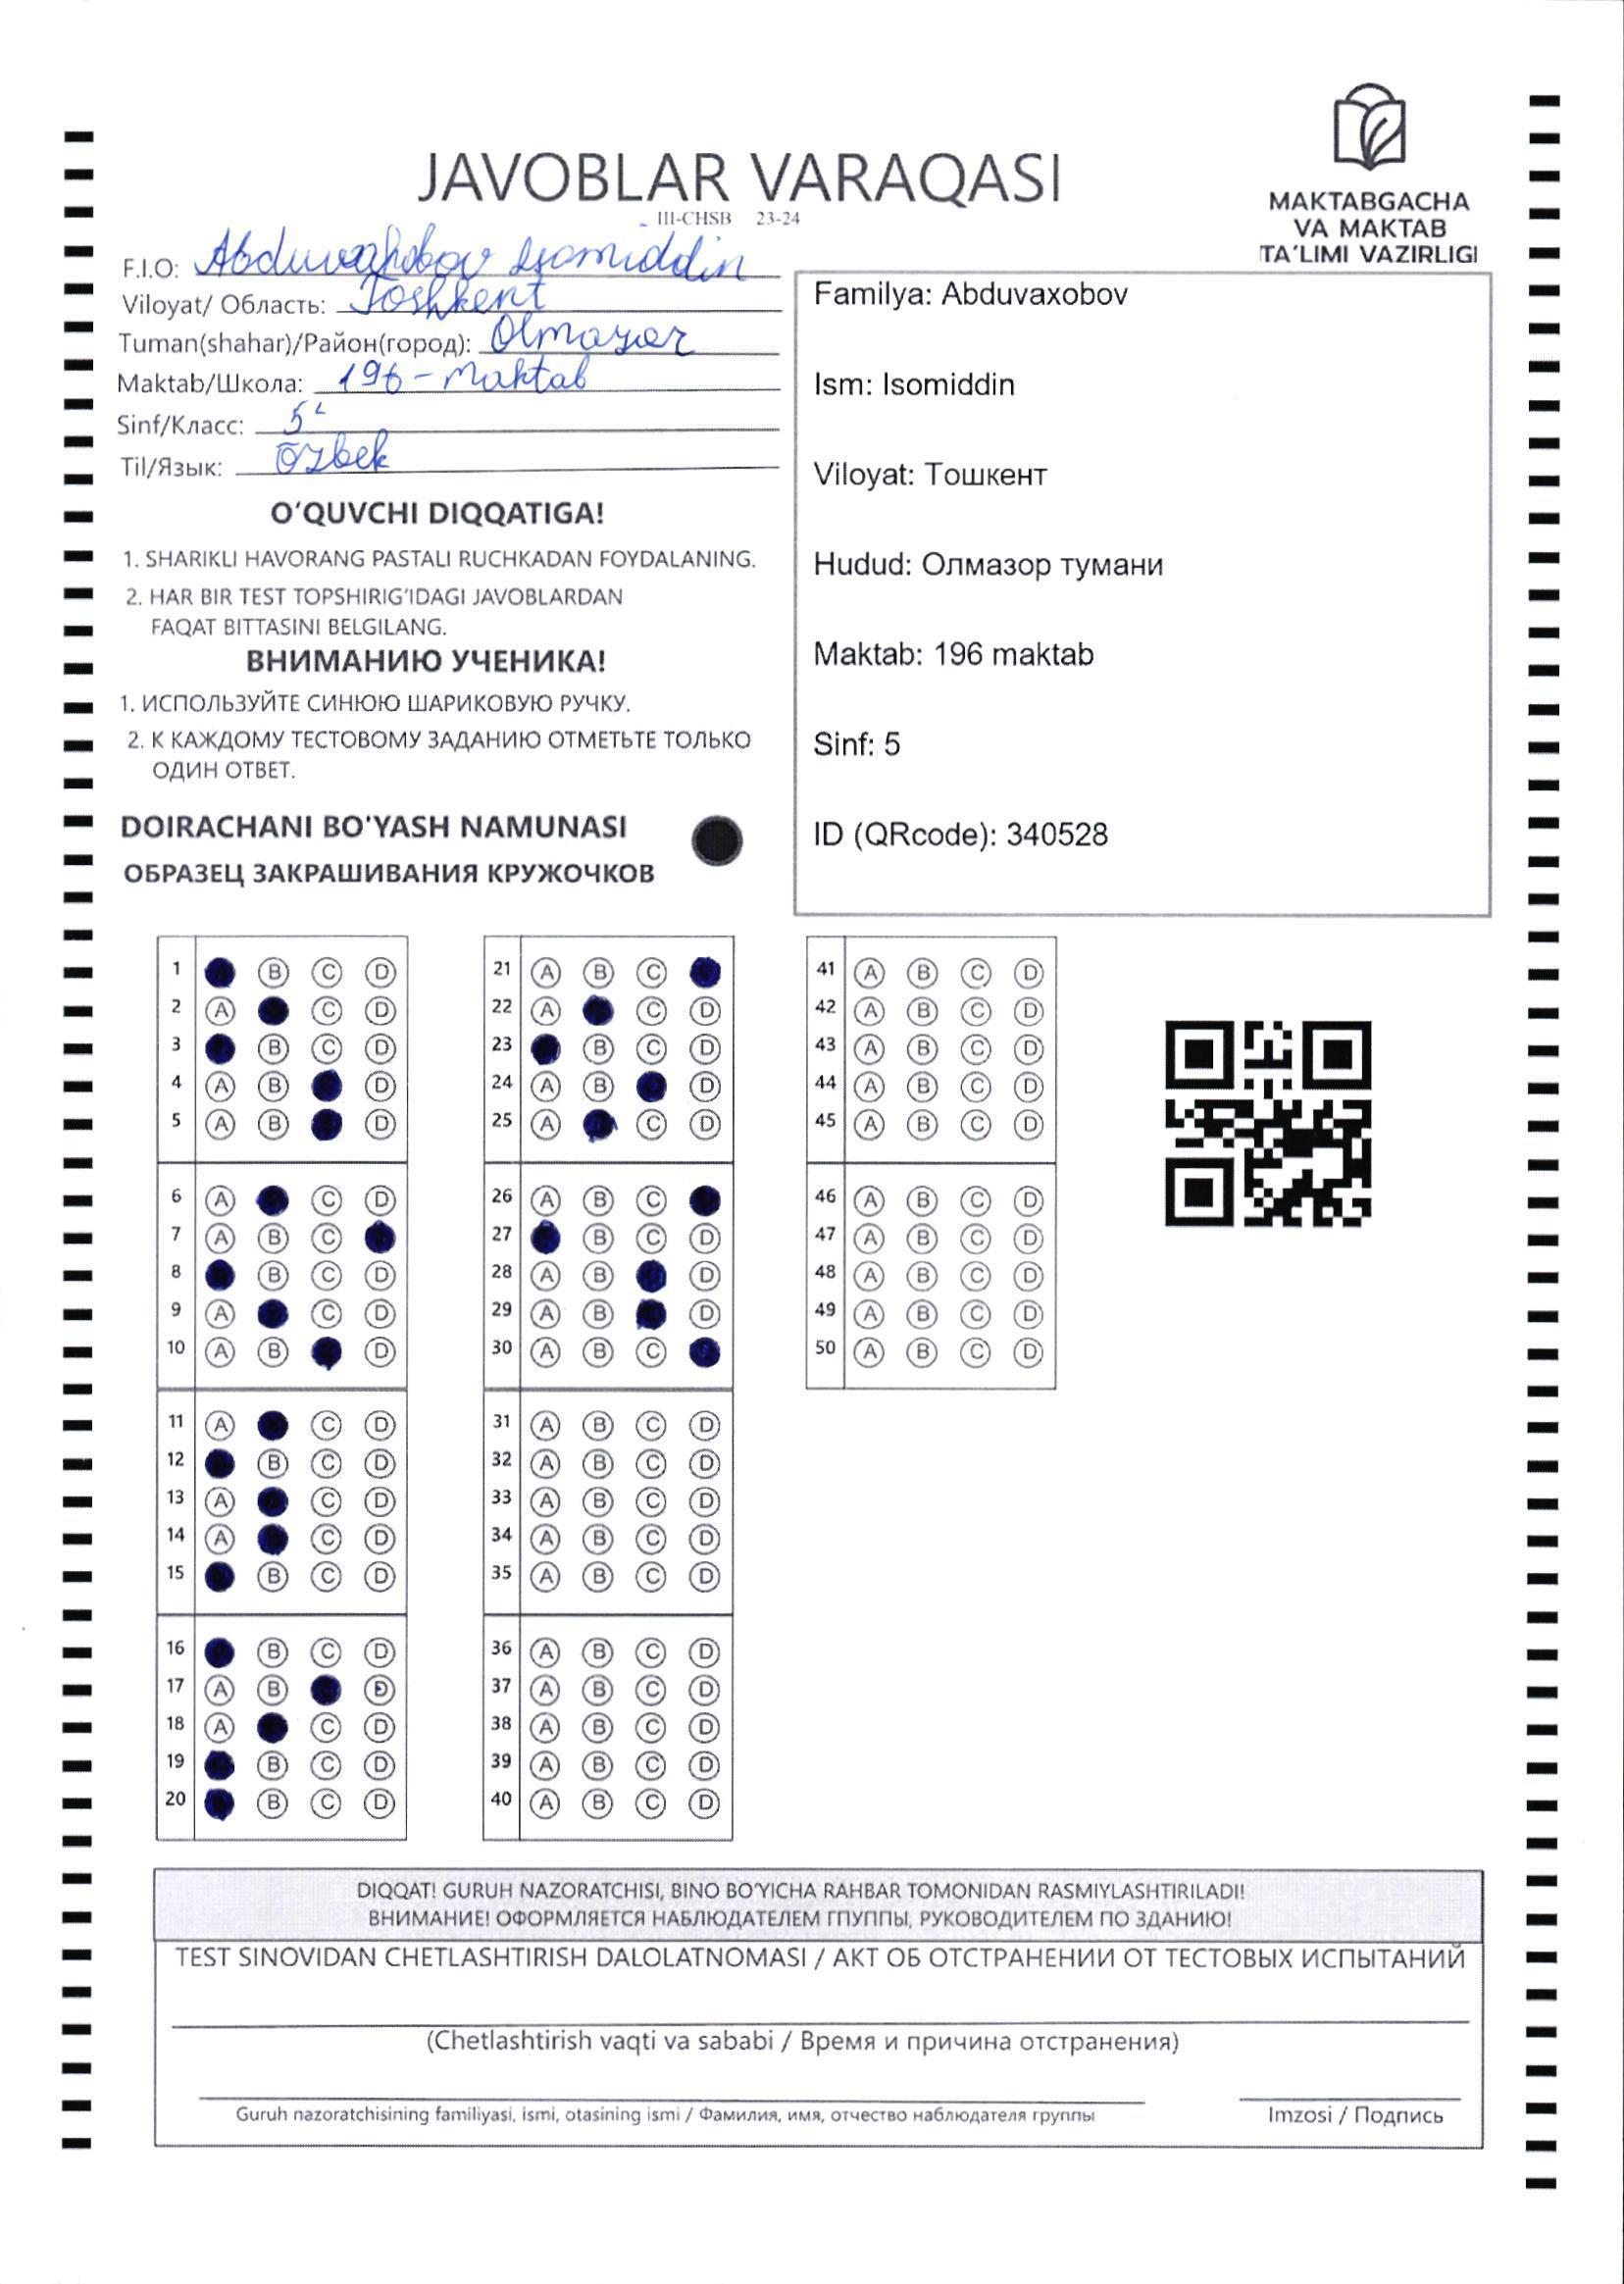 JAVOBLAR VARAQASI
III-CHSB 23-24
MAKTABGACHA
VA MAKTAB
TA'LIMI VAZIRLIGI
F.I.O: Abduvahobov Isomiddin
Viloyat/ Область: Toshkent
Tuman(shahar)/Район(город): Olmazor
Maktab/Школа: 196-maktab
Sinf/Класс: 5
Til/Язык: Ozbek
O'QUVCHI DIQQATIGA!
1. SHARIKLI HAVORANG PASTALI RUCHKADAN FOYDALANING.
2. HAR BIR TEST TOPSHIRIG'IDAGI JAVOBLARDAN
FAQAT BITTASINI BELGILANG.
ВНИМАНИЮ УЧЕНИКА!
1. ИСПОЛЬЗУЙТЕ СИНЮЮ ШАРИКОВУЮ РУЧКУ.
2. К КАЖДОМУ ТЕСТОВОМУ ЗАДАНИЮ ОТМЕТЬТЕ ТОЛЬКО
ОДИН ОТВЕТ.
DOIRACHANI BO'YASH NAMUNASI
ОБРАЗЕЦ ЗАКРАШИВАНИЯ КРУЖОЧКОВ
Familya: Abduvaxobov
Ism: Isomiddin
Viloyat: Тошкент
Hudud: Олмазор тумани
Maktab: 196 maktab
Sinf: 5
ID (QRcode): 340528
1 B C D
2 A C D
3 B C D
4 A B D
5 A B D
6 A C D
7 A B C
8 B C D
9 A C D
10 A B D
11 A C D
12 B C D
13 A C D
14 A C D
15 B C D
16 B C D
17 A B D
18 A C D
19 B C D
20 B C D
21 A B C
22 A C D
23 B C D
24 A B D
25 A C D
26 A B C
27 B C D
28 A B D
29 A B D
30 A B C
31 A B C D
32 A B C D
33 A B C D
34 A B C D
35 A B C D
36 A B C D
37 A B C D
38 A B C D
39 A B C D
40 A B C D
41 A B C D
42 A B C D
43 A B C D
44 A B C D
45 A B C D
46 A B C D
47 A B C D
48 A B C D
49 A B C D
50 A B C D
DIQQAT! GURUH NAZORATCHISI, BINO BO'YICHA RAHBAR TOMONIDAN RASMIYLASHTIRILADI!
ВНИМАНИЕ! ОФОРМЛЯЕТСЯ НАБЛЮДАТЕЛЕМ ГПУППЫ, РУКОВОДИТЕЛЕМ ПО ЗДАНИЮ!
TEST SINOVIDAN CHETLASHTIRISH DALOLATNOMASI / АКТ ОБ ОТСТРАНЕНИИ ОТ ТЕСТОВЫХ ИСПЫТАНИЙ
(Chetlashtirish vaqti va sababi / Время и причина отстранения)
Guruh nazoratchisining familiyasi, ismi, otasining ismi / Фамилия, имя, отчество наблюдателя группы
Imzosi / Подпись